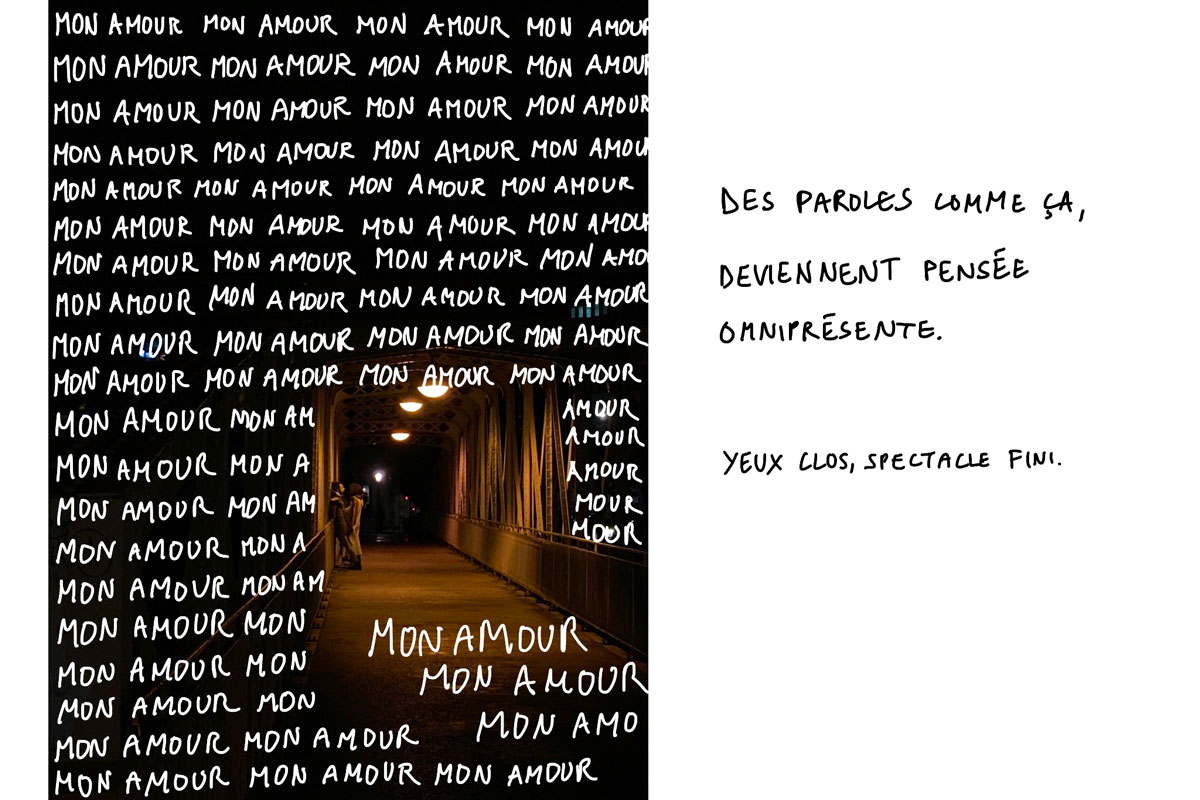 MON AMOUR MON AMOUR MON AMOUR MON AMOUR
MON AMOUR MON AMOUR MON AMOUR MON AMOUR
MON AMOUR MON AMOUR MON AMOUR MON AMOUR
MON AMOUR MON AMOUR MON AMOUR MON AMOU
MON AMOUR MON AMOUR MON AMOUR MON AMOUR
MON AMOUR MON AMOUR MON AMOUR MON AMOU
MON AMOUR MON AMOUR MON AMOUR MON AMO
MON AMOUR MON AMOUR MON AMOUR MON AMOUR
MON AMOUR MON AMOUR MON AMOUR MON AMOUR
MON AMOUR MON AMOUR MON AMOUR MON AMOUR
MON AMOUR MON AM AMOUR
AMOUR
MON AMOUR MON A AMOUR
MON AMOUR MON AM MOUR
MOUR
MON AMOUR MON A
MON AMOUR MON AM
MON AMOUR MON
MON AMOUR
MON AMOUR MON
MON AMOUR
MON AMOUR MON
MON AMO
MON AMOUR MON AMOUR
MON AMOUR MON AMOUR MON AMOUR
DES PAROLES COMME ÇA,
DEVIENNENT PENSÉE
OMNIPRÉSENTE.
YEUX CLOS, SPECTACLE FINI.